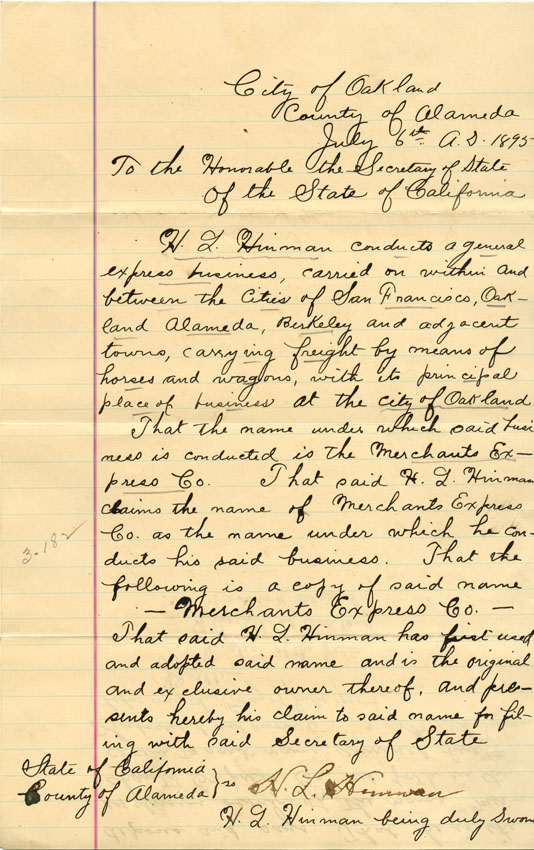 City of Oakland
County of Alameda
July 6th A.D. 1895
To the Honorable the Secretary of State
Of the State of California
H. L. Hinman conducts a general
express business, carried on within and
between the Cities of San Francisco, Oak-
land Alameda, Berkeley and adjacent
towns, carrying freight by means of
horses and wagons, with its principal
place of business at the city of Oakland
That the name under which said busi
ness is conducted is the Merchants Ex-
press Co. That said H. L. Hinman
claims the name of Merchants Express
Co. as the name under which he con-
ducts his said business. That the
3-182
following is a copy of said name
— Merchants Express Co. —
That said H. L. Hinman has first used
and adopted said name and is the original
and exclusive owner thereof, and pre-
sents hereby his claim to said name for fil-
ing with said Secretary of State
State of California
County of Alameda } ss
H. L. Hinman
H. L. Hinman being duly sworn